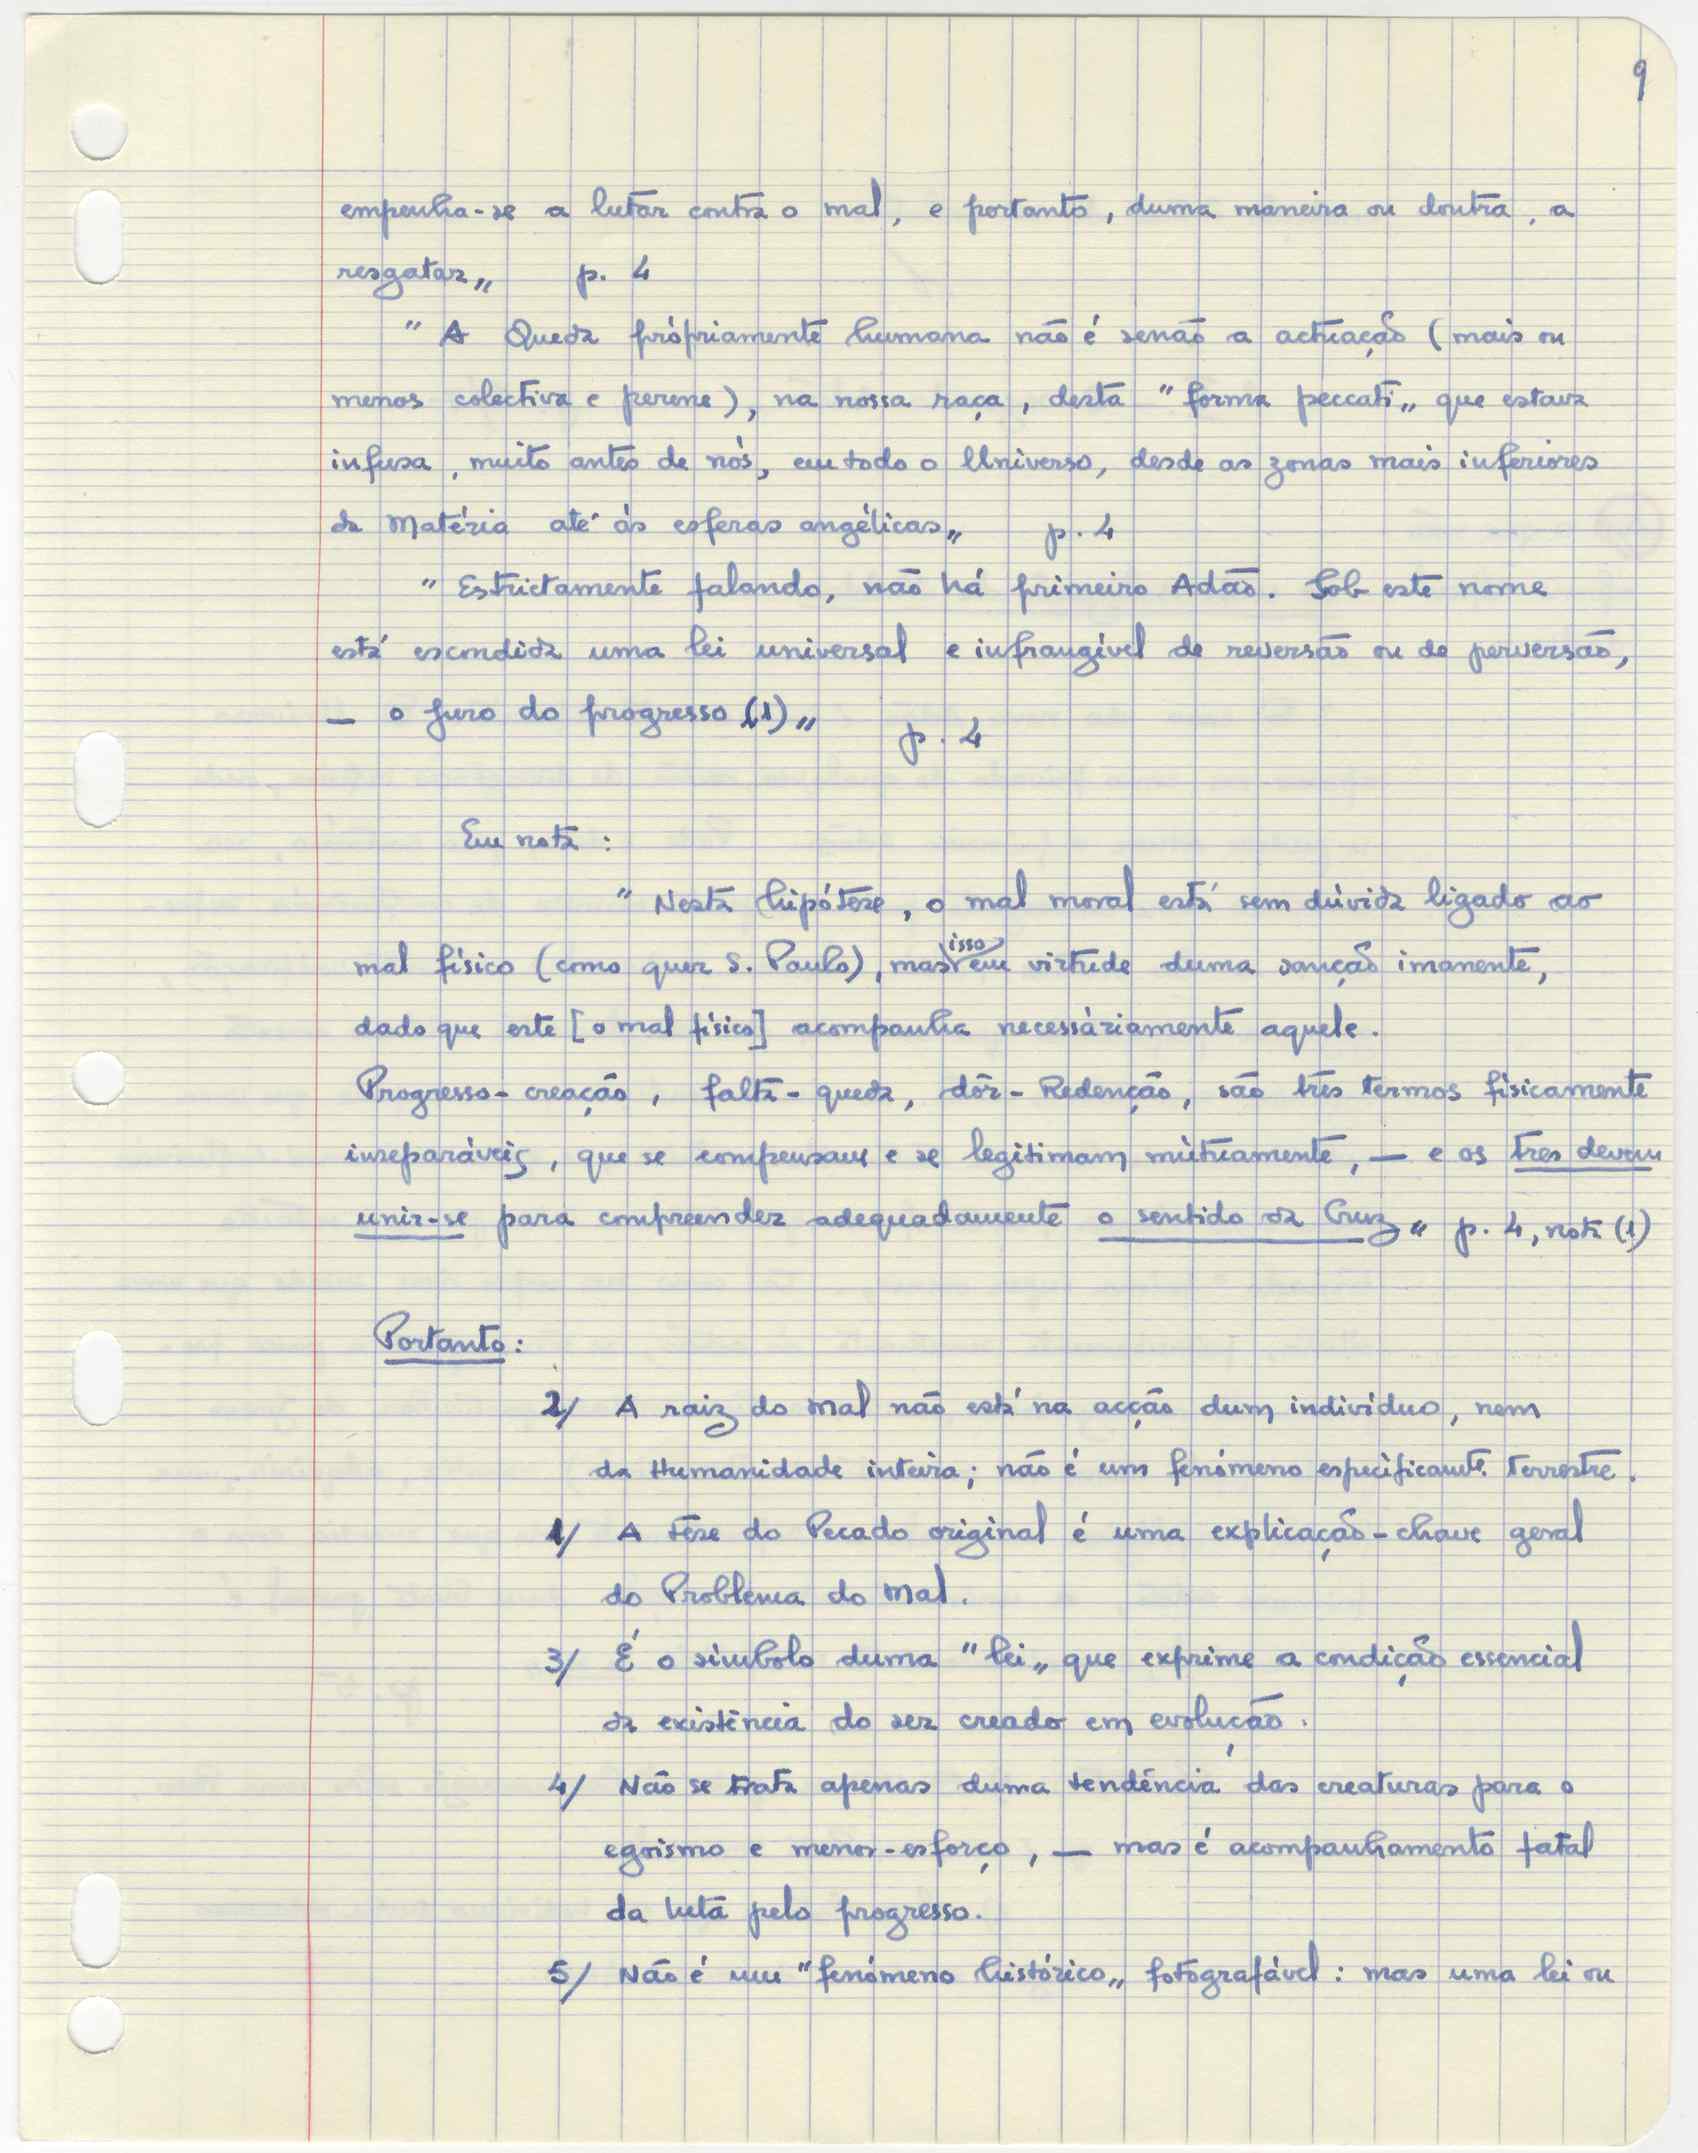 9
empenha-se a lutar contra o mal, e portanto, duma maneira ou doutra, a
resgatar„ p. 4
" A Queda pròpriamente humana não é senão a actuação (mais ou
menos colectiva e perene), na nossa raça, desta "forma peccati„ que estava
infusa, muito antes de nós, em todo o Universo, desde as zonas mais inferiores
da Matéria até às esferas angélicas„ p. 4
" Estrictamente falando, não há primeiro Adão. Sob este nome
está escondida uma lei universal e infrangível de reversão ou de perversão,
— o juro do progresso (1)„ p. 4
Em nota :
" Nesta hipótese, o mal moral está sem dúvida ligado ao
mal físico (como quer S. Paulo), mas isso em virtude duma sanção imanente,
dado que este [o mal físico] acompanha necessàriamente aquele.
Progresso-creação, falta-queda, dôr-Redenção, são três termos fìsicamente
inseparáveis, que se compensam e se legitimam mùtuamente, — e os tres devem
unir-se para compreender adequadamente o sentido da Cruz„ p. 4, nota (1)
Portanto :
2/ A raiz do Mal não está na acção dum indivíduo, nem
da Humanidade inteira; não é um fenómeno especìficamte. terrestre.
1/ A tese do Pecado original é uma explicação-chave geral
do Problema do Mal.
3/ É o símbolo duma "lei„ que exprime a condição essencial
da existência do ser creado em evolução.
4/ Não se trata apenas duma tendência das creaturas para o
egoismo e menor-esforço, — mas é acompanhamento fatal
da luta pelo progresso.
5/ Não é um "fenómeno histórico„ fotografável : mas uma lei ou